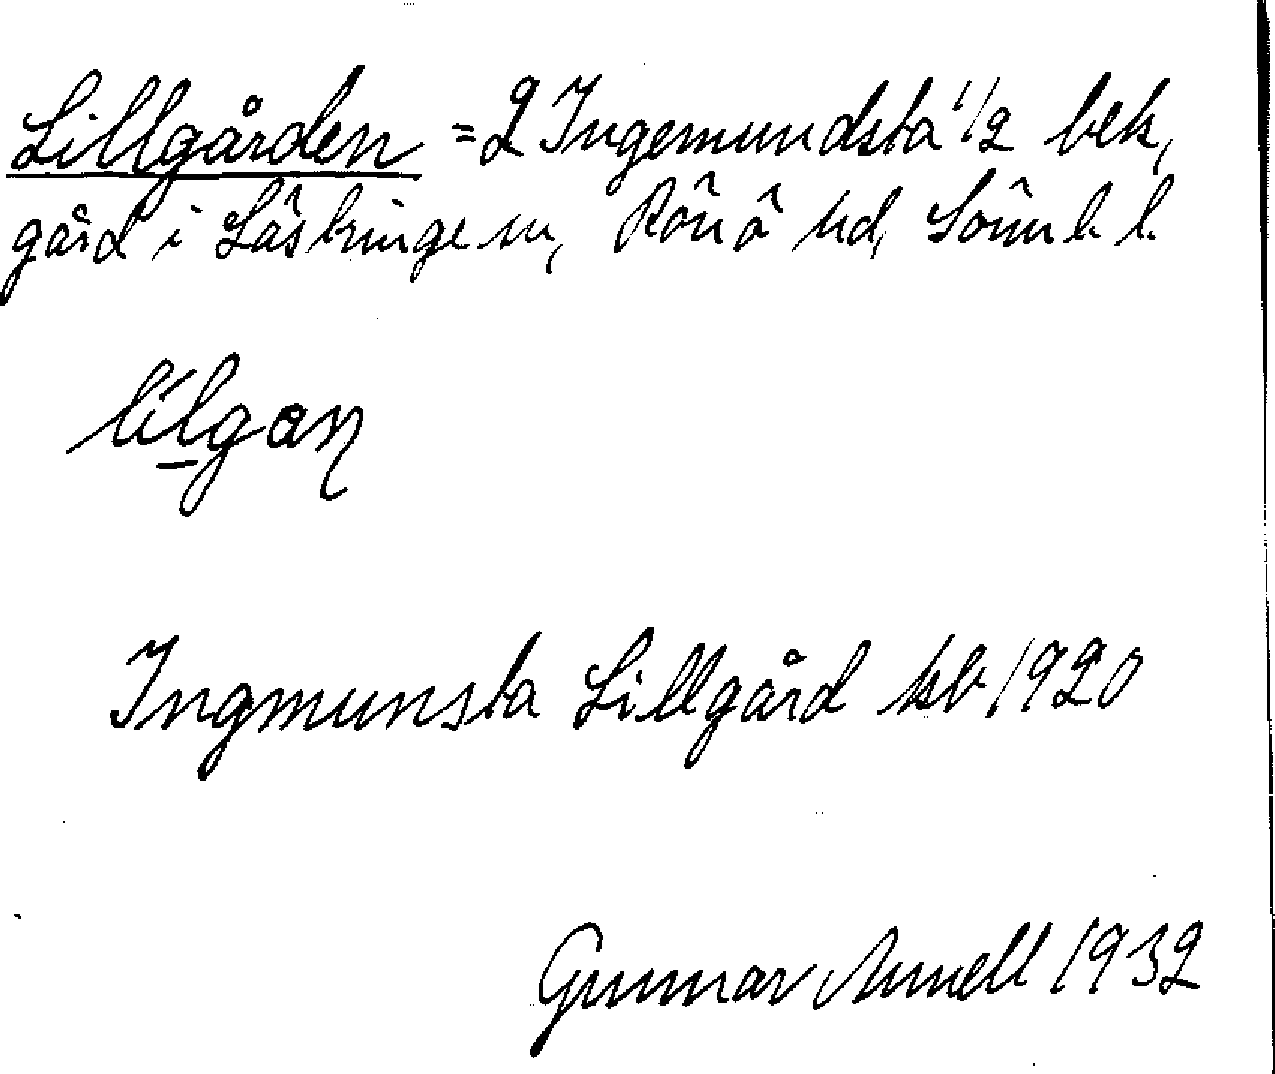 Lillgården = 2 Ingemundsta 1/2 bek,
gård i Lästringe sn, Rönö hd, Sörml. l.
lilgan
Ingmunsta Lillgård kb 1920
Gunnar 1932